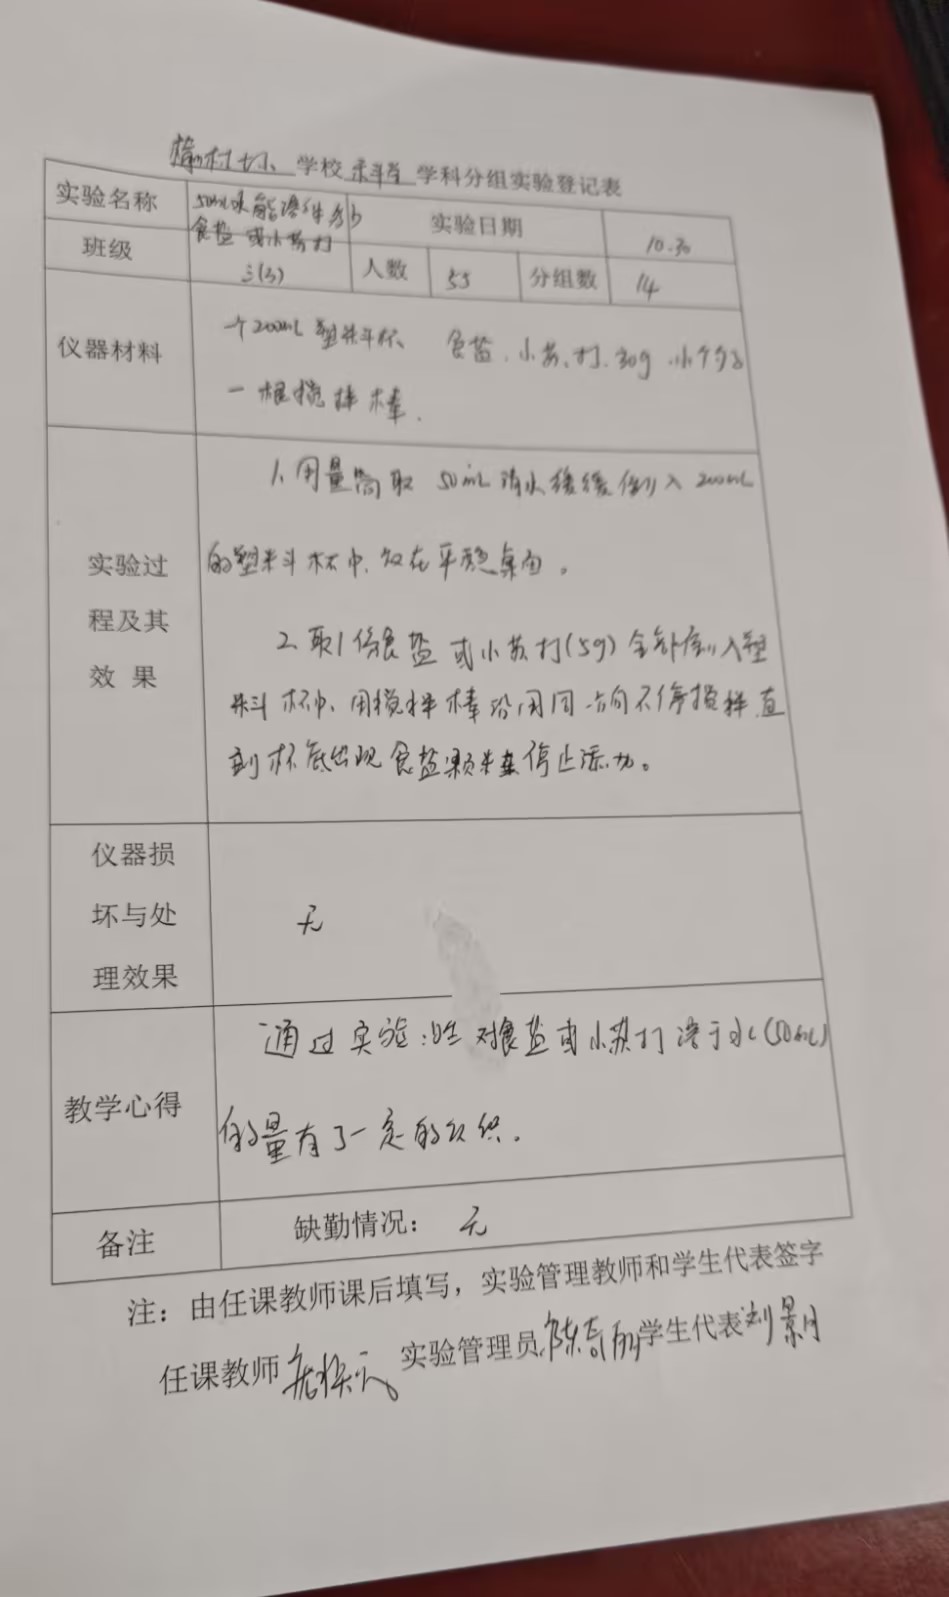 学校 科学 学科分组实验登记表
实验名称 50mL水能溶解多少
食盐或小苏打
实验日期 10.30
班级 三(3) 人数 55 分组数 14
仪器材料 一个200mL塑料杯、食盐、小苏打.30g
一根搅拌棒.
实验过程及其效果
1.用量筒取50mL清水缓缓倒入200mL
的塑料杯中,放在平稳桌面。
2.取1份食盐或小苏打(5g)全部倒入塑
料杯中,用搅拌棒沿同一方向不停搅拌直
到杯底出现食盐颗粒停止添加。
仪器损坏与处理效果 无
教学心得 通过实验:对食盐或小苏打溶于水(50mL)
的量有了一定的
备注 缺勤情况: 无
注:由任课教师课后填写,实验管理教师和学生代表签字
任课教师 实验管理员 学生代表 刘景月